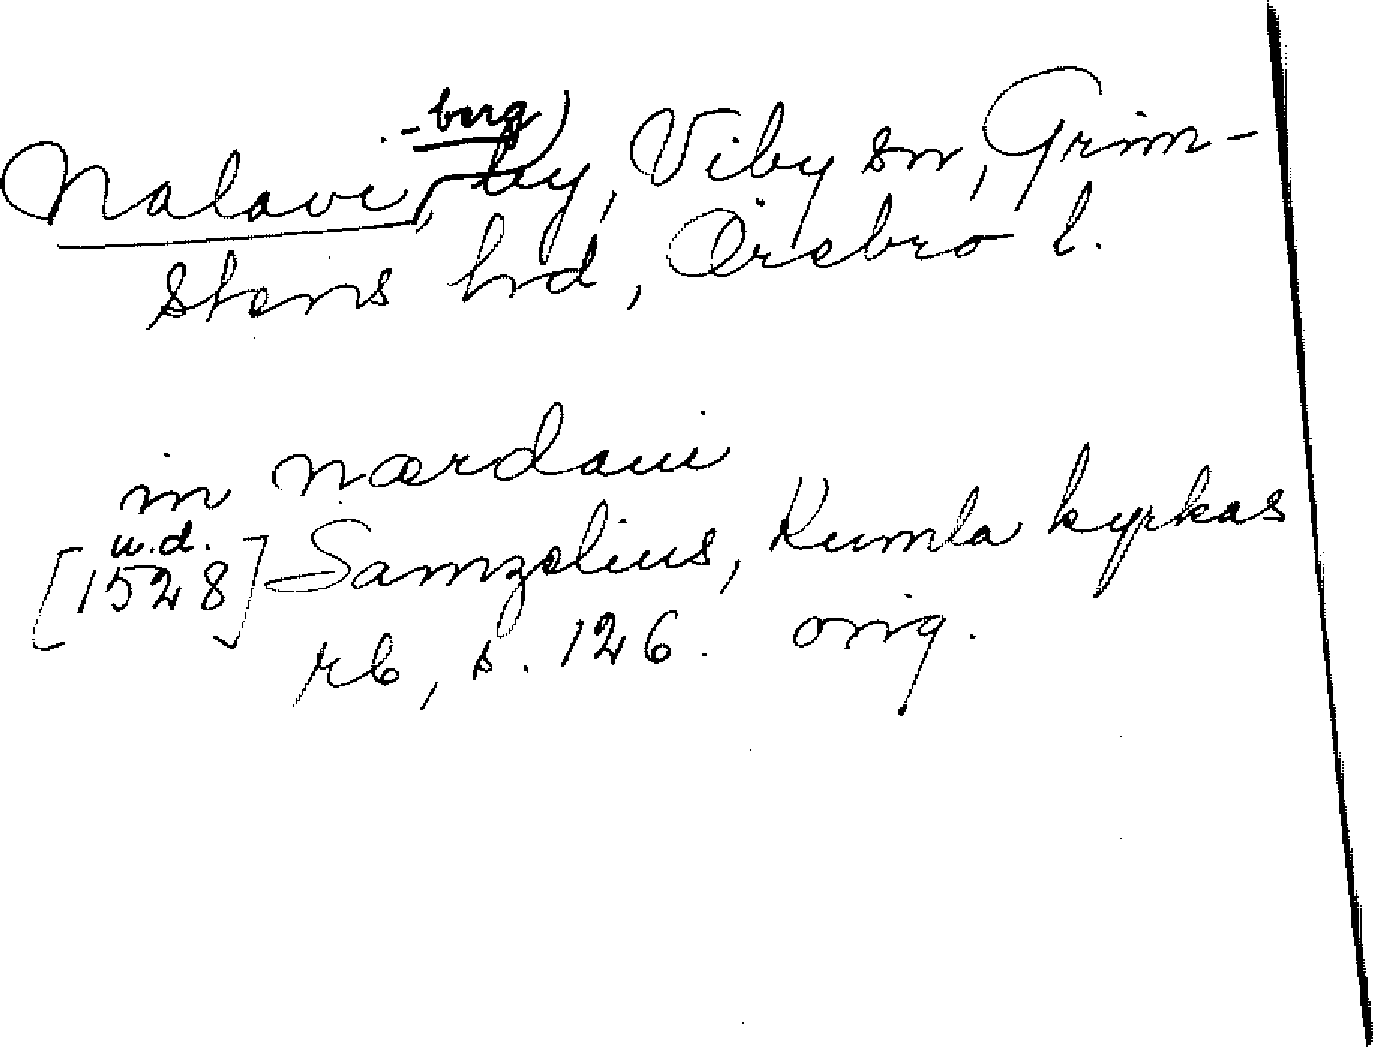 -berg)
Nalavi, by, Viby sn, Grim-
stens hrd, Örebro l.
in nærdaui
u.d.
[1528] Samzelius, Kumla kyrkas
rb, s. 126. orig.